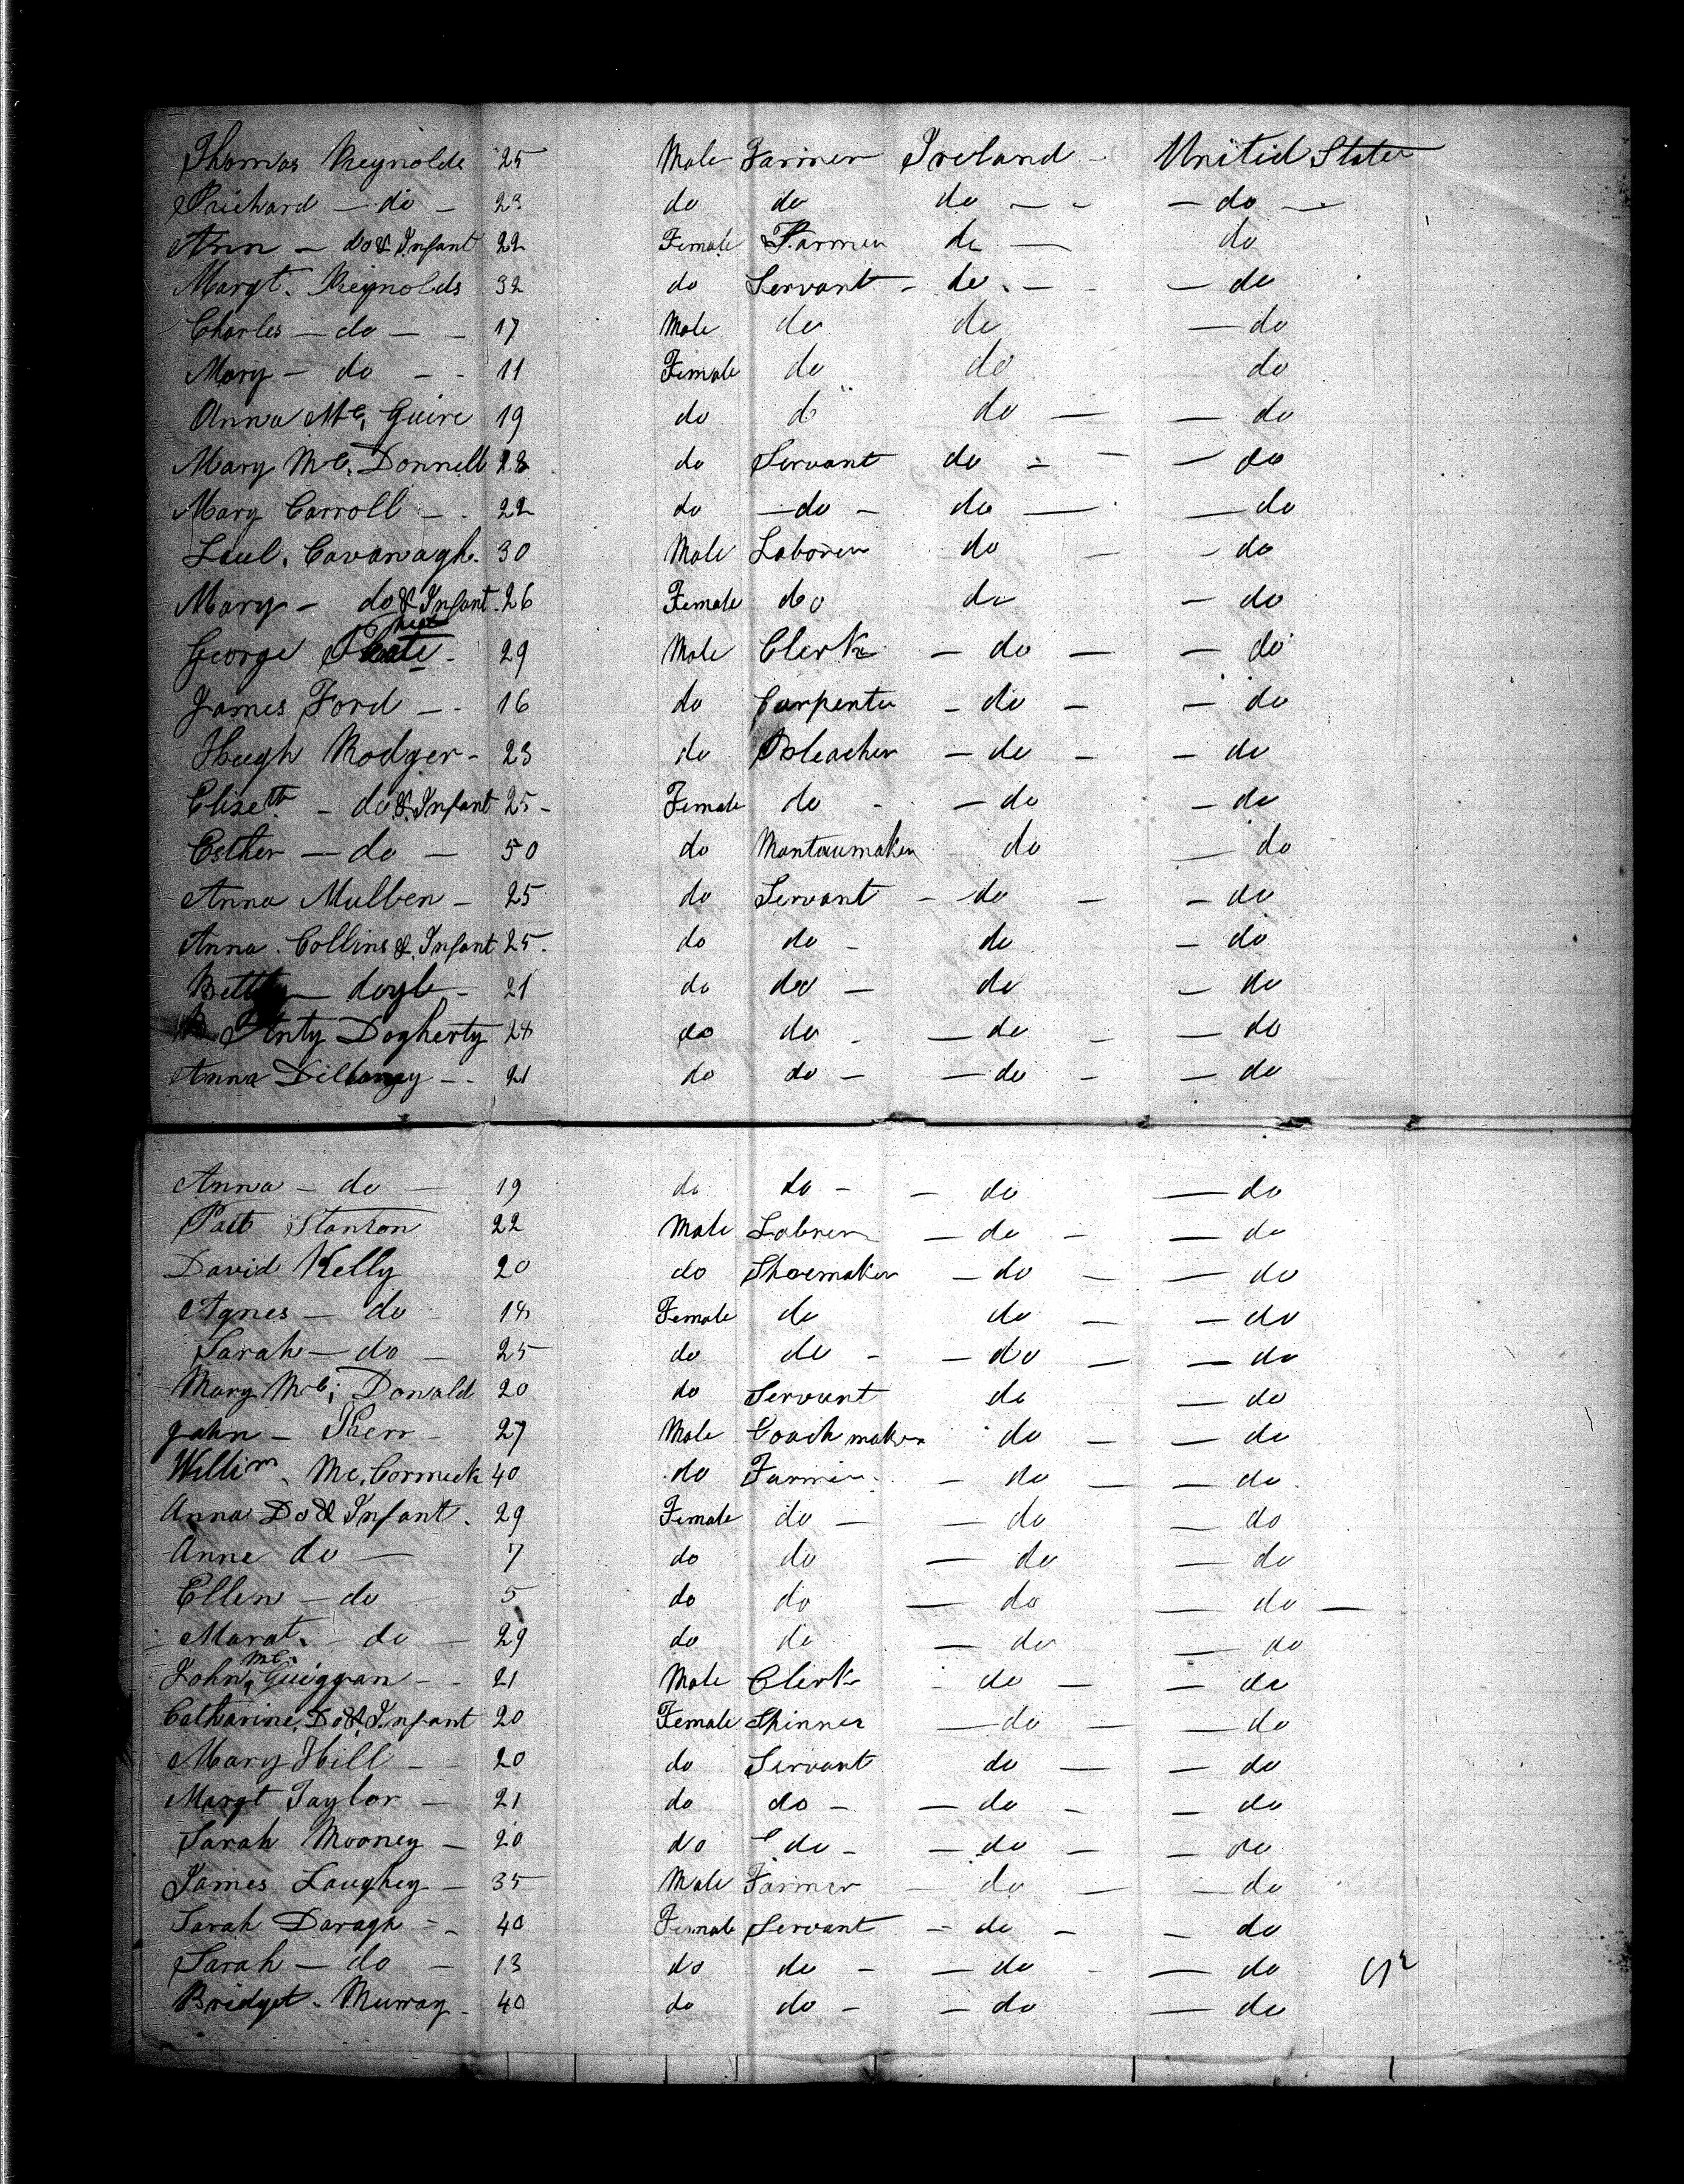 Thomas Reynolds 25 Male Farmer Ireland - United States
Richard - do - 23 do do do - - - do -
Ann - do & Infant 22 Female Farmer do - do
Margt. Reynolds 32 do Servant - do - - do
Charles - do - - 17 Male do do - do
Mary - do - - 11 Female do do do
Anna Mc, Guire 19 do do do - - do
Mary Mc. Donnell 28 do Servant do - - - do
Mary Carroll - - 22 do - do - do - - do
Cavanagh. 30 Male Laborer do - - do
Mary - do & Infant. 26 Female do do - do
George 29 Male Clerk - do - - do
James Ford - - 16 do Carpenter - do - - do
Hugh Rodger - 23 do Bleacher - do - - do
Elizeth - do & Infant 25 - Female do - - do - do
Esther - do - 50 do Mantaumaker do - do
Anna Mullen - 25 do Servant - do - - do
Anna. Collins & Infant 25. do do - do - do
Betty - doyle - 21 do do - do - do
Dogherty 28 do do - - do - - do
Anna Dillaney - - 21 do do - - do - - do
Anna - do - 19 do do - - do - do
Patt Stanton 22 Male Labrer - do - - do
David Kelly 20 do Shoemaker - do - - do
Agnes - do 18 Female do do - - do
Sarah - do - 25 do do - - do - - do
Mary Mc; Donald 20 do Servant do - do
John - Kerr - 27 Male Coach maker do - - do
Willim. Mc, Cormick 40 do Farmer - do - - do
Anna Do & Infant. 29 Female do - - do - do
Anne do - 7 do do - do - do
Ellen - do 5 do do - do - do -
Margt. - do - 29 do do - do - do
John Mc. Guiggan - - 21 Male Clerk - do - - do
Catharine, Do & Infant 20 Female Spinner - do - - do
Mary Hill - 20 do Servant do - - do
Margt Taylor - 21 do do - - do - - do
Sarah Mooney - 20 do do - - do - - do
James Laughey - 35 Male Farmer - do - - do
Sarah Daragh - - 40 Female Servant - do - - do
Sarah - do - 13 do do - - do - - do
Bridget. Murray - 40 do do - - do - do